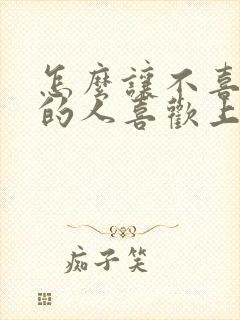 怎麼讓不喜
的人喜歡上
痴子笑